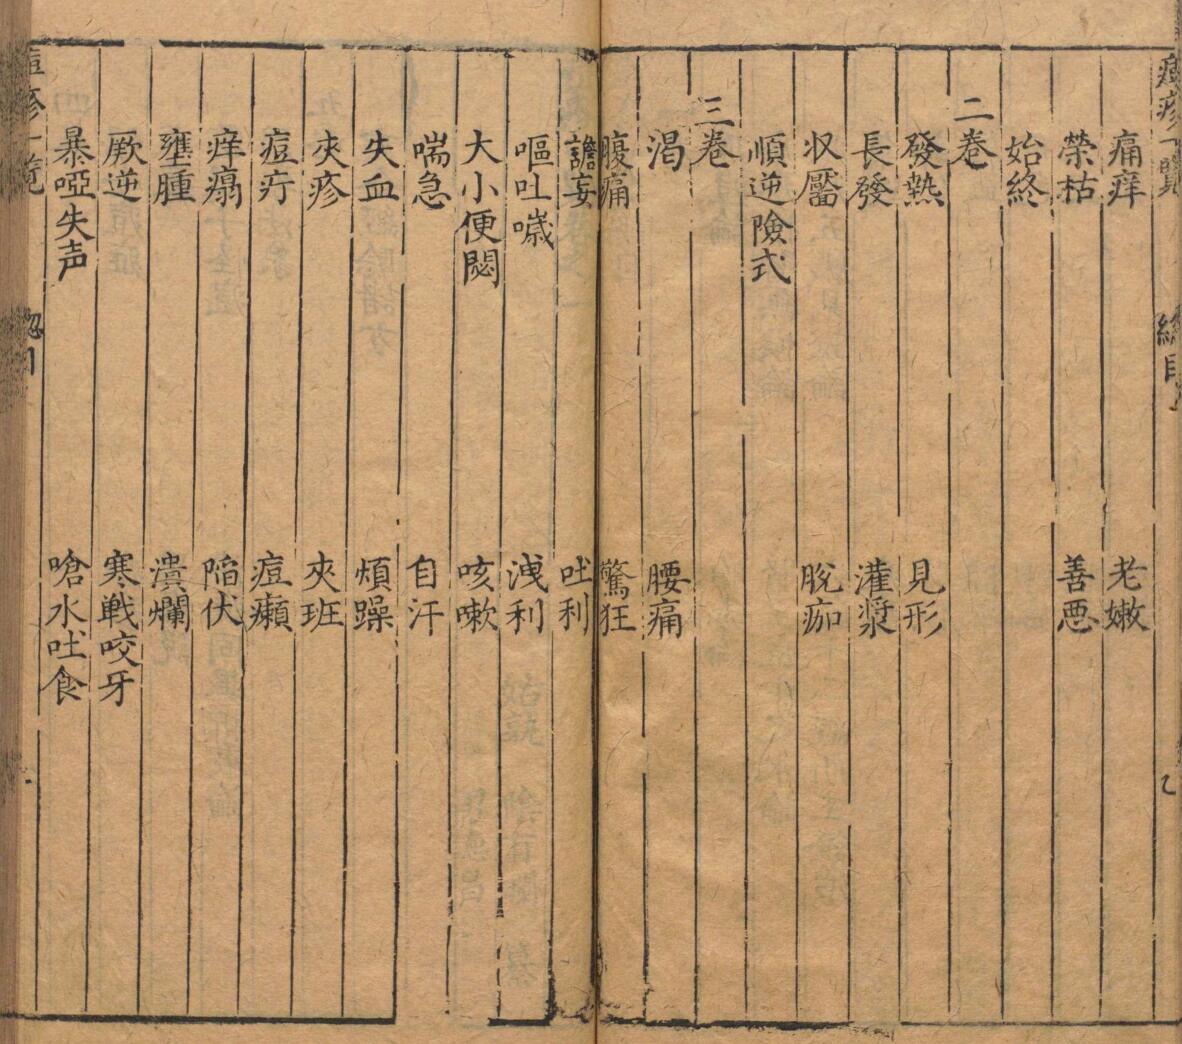 痘疹一覽 總目
痛痒 老嫩
榮枯 善惡
始終
二卷
發熱 見形
長發 灌漿
収靨 脫痂
順逆險式
三卷
渴 腰痛
腹痛 驚狂
譫妄 吐利
嘔吐噦 洩利
大小便閟 咳嗽
喘急 自汗
失血 煩躁
夾疹 夾班
痘疔 痘癩
痒癘 陷伏
壅腫 潰爛
厥逆 寒戦咬牙
暴啞失声 嗆水吐食
痘疹一覽 總目